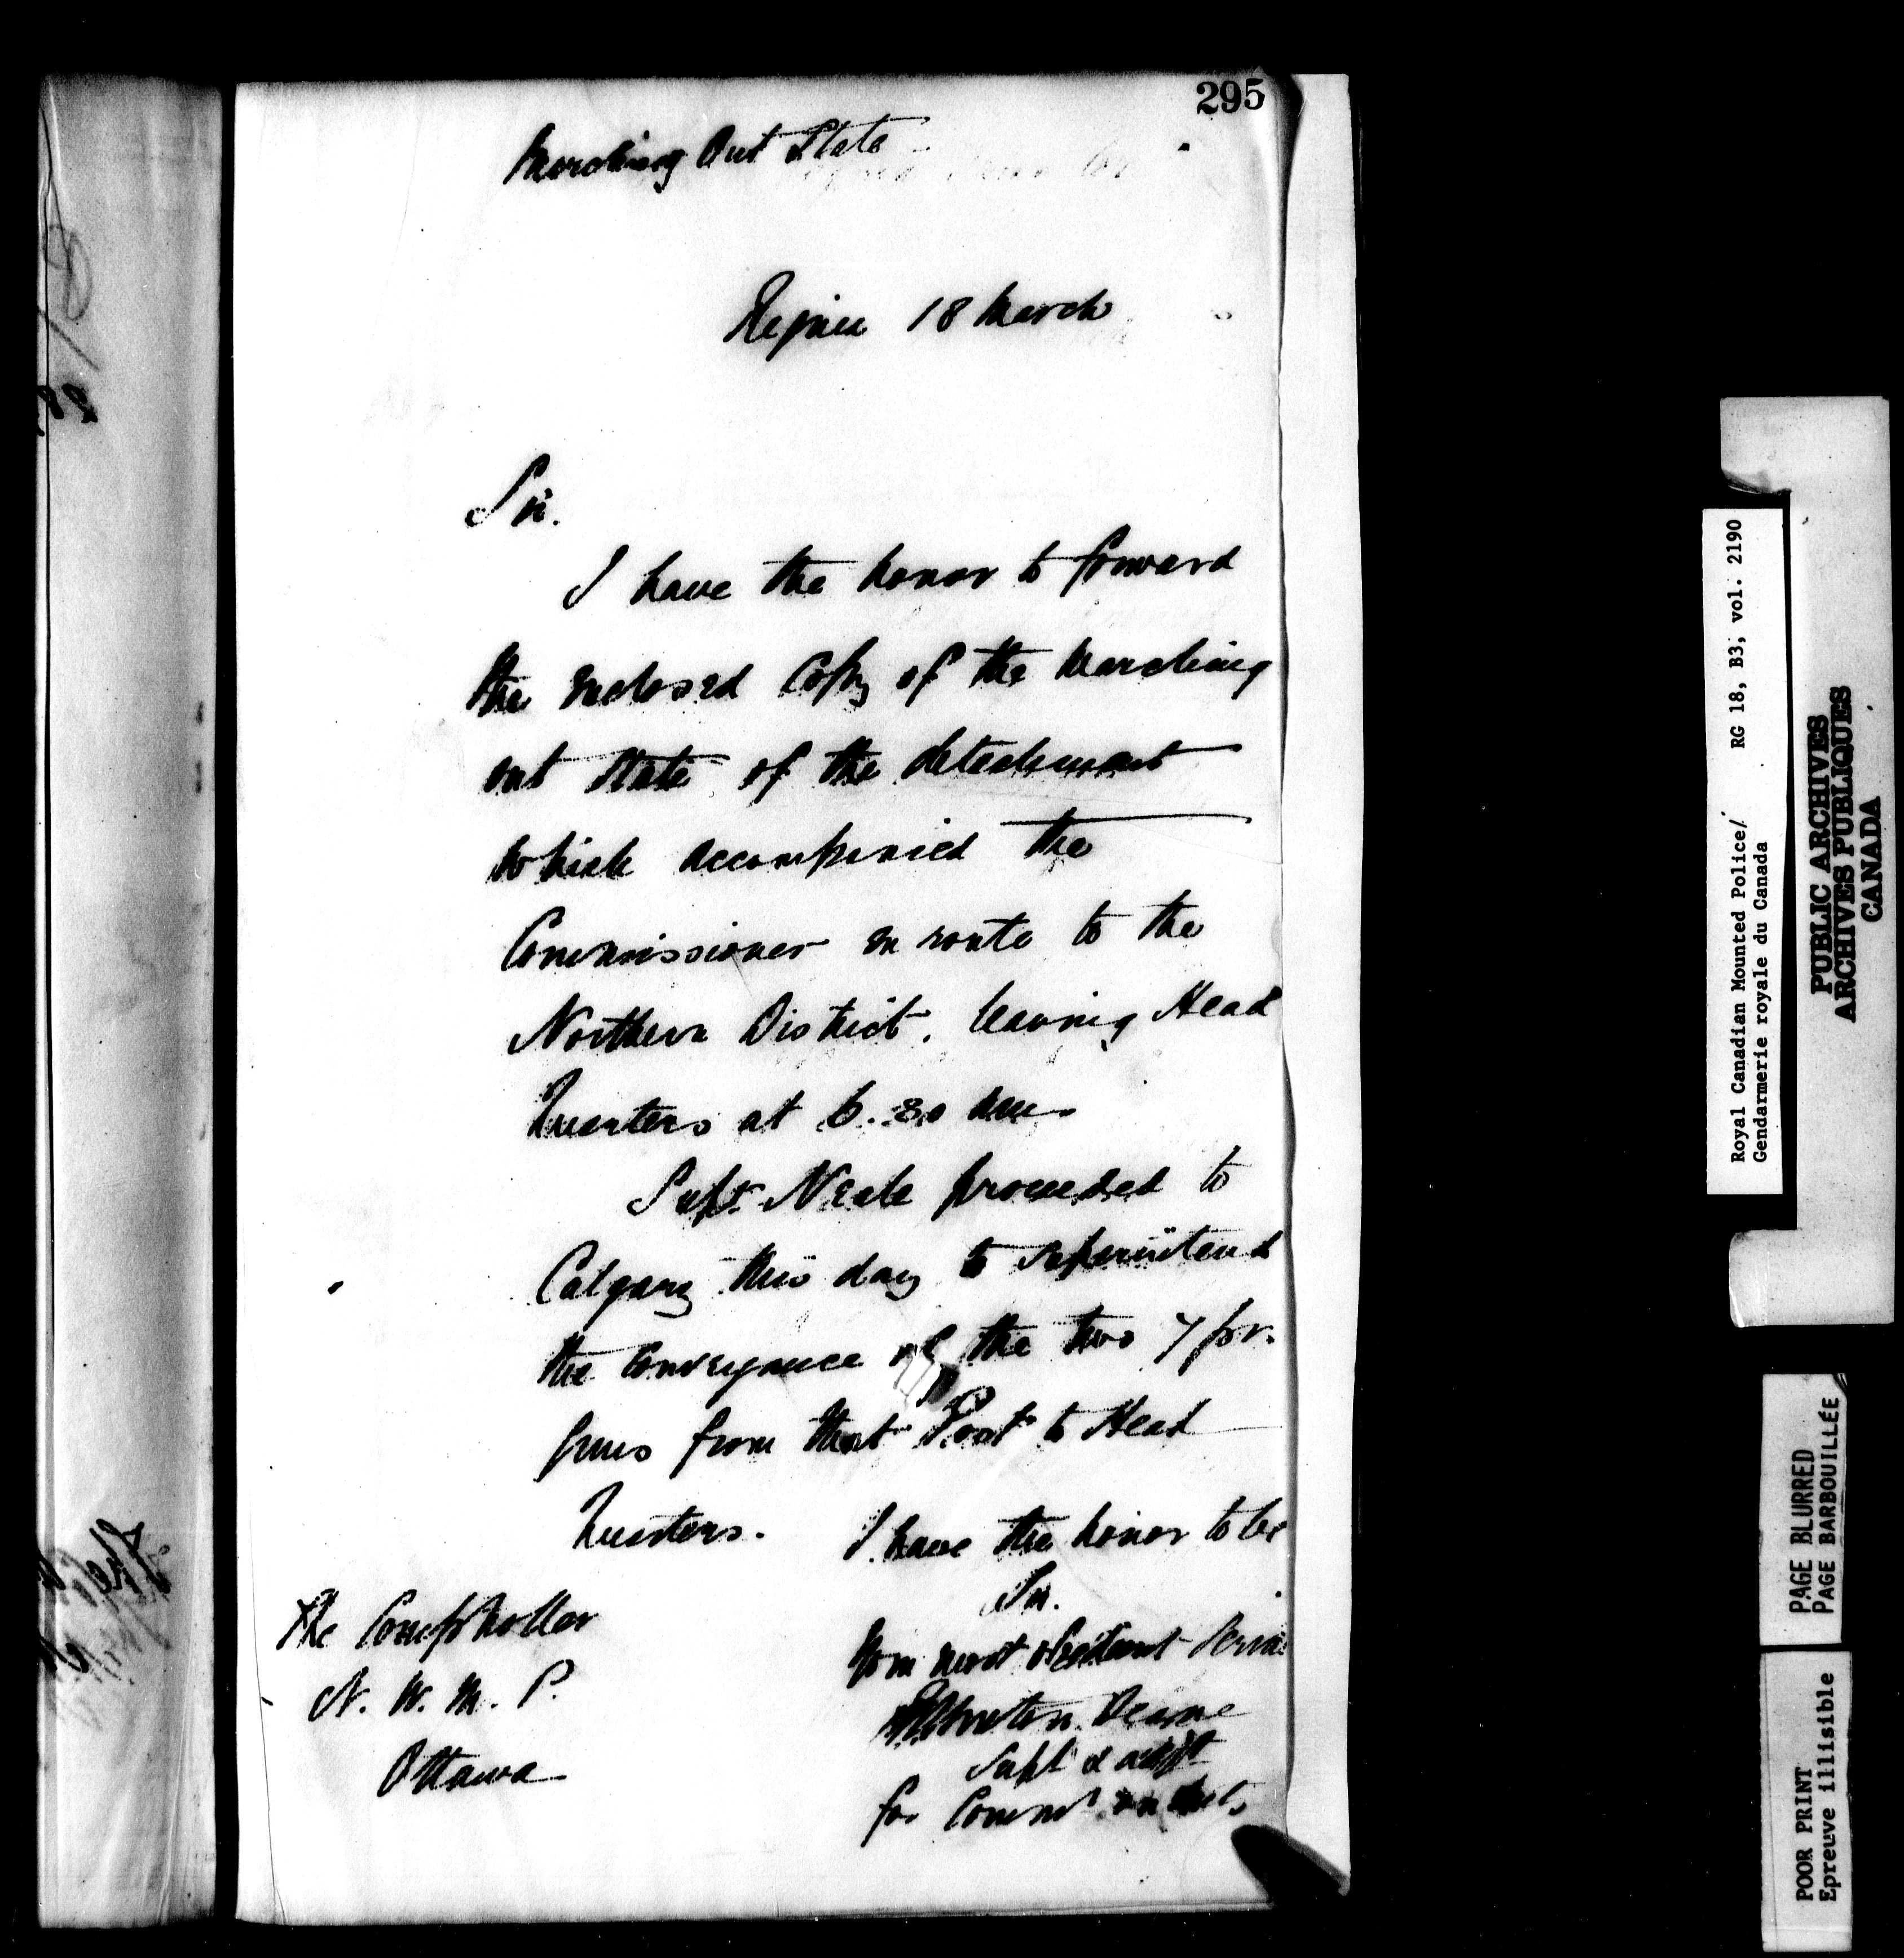 295
Marching Out State
Regina 18 March
Sir.
I have the honor to forward
the enclosed Copy of the Marching
out State of the detachment
which accompanied the
Commissioner en route to the
Northern District, leaving Head
Quarters at 6.30 am.
Supt. Neale proceeded to
Calgary this day to superintend
the conveyance of the two 7 pr.
guns from that Post to Head
Quarters.
I have the honor to be
Sir.
Your most obedient Serva
The Comptroller
N. W. M. P.
Ottawa
Burton Deane
Supt & adjt
for Commr
Royal Canadian Mounted Police/ RG 18, B3, vol. 2190
Gendarmerie royale du Canada
PUBLIC ARCHIVES
ARCHIVES PUBLIQUES
CANADA
PAGE BLURRED
PAGE BARBOUILLÉE
POOR PRINT
Epreuve illisible